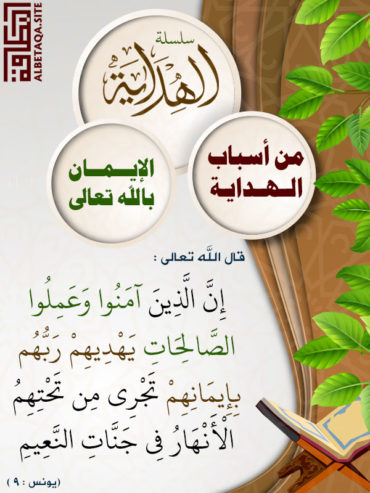 البطاقة
ALBETAQA.SITE
سلسلة
الهداية
من أسباب
الهداية
الإيمان
بالله تعالى
قال اللَّه تعالى :
إِنَّ الَّذِينَ آمَنُوا وَعَمِلُوا
الصَّالِحَاتِ يَهْدِيهِمْ رَبُّهُم
بِإِيمَانِهِمْ تَجْرِي مِن تَحْتِهِمُ
الْأَنْهَارُ فِي جَنَّاتِ النَّعِيمِ
(يونس : ٩)